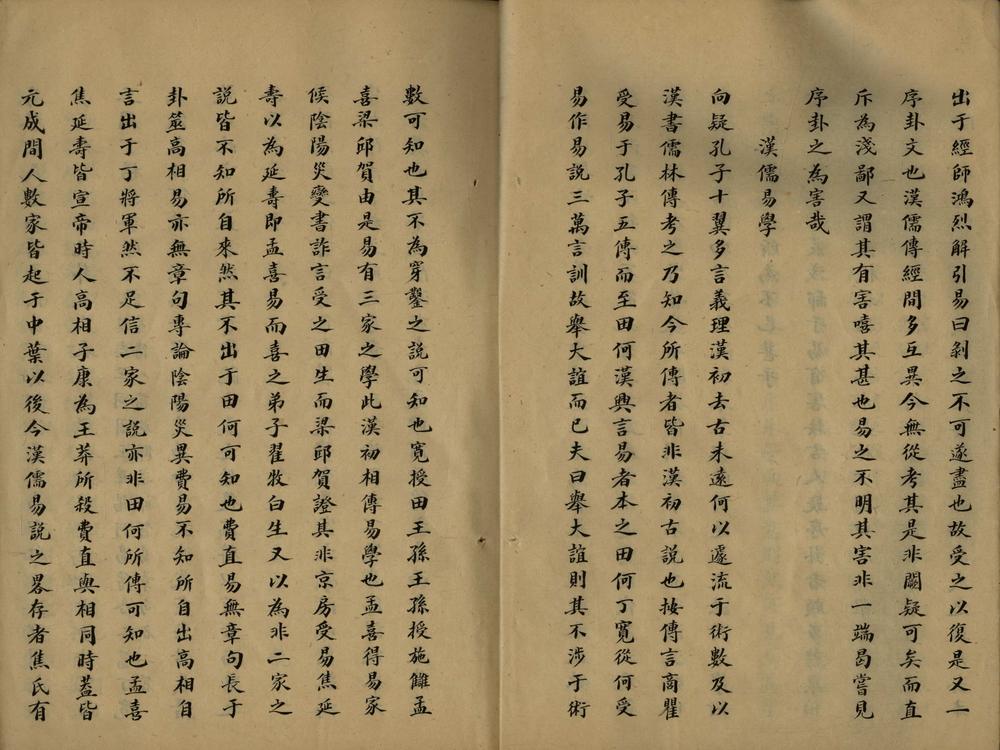 出于經師鴻烈解引易曰剝之不可遂盡也故受之以復是又一
序卦文也漢儒傳經間多互異今無從考其是非闕疑可矣而直
斥為淺鄙又謂其有害嘻其甚也易之不明其害非一端曷嘗見
序卦之為害哉
漢儒易學
向疑孔子十翼多言義理漢初去古未遠何以遽流于術數及以
漢書儒林傳考之乃知今所傳者皆非漢初古說也按傳言商瞿
受易于孔子五傳而至田何漢興言易者本之田何丁寬從何受
易作易說三萬言訓故舉大誼而已夫曰舉大誼則其不涉于術
數可知也其不為穿鑿之說可知也寬授田王孫王孫授施讎孟
喜梁邱賀由是易有三家之學此漢初相傳易學也孟喜得易家
候陰陽災變書詐言受之田生而梁邱賀證其非京房受易焦延
壽以為延壽即孟喜易而喜之弟子翟牧白生又以為非二家之
說皆不知所自來然其不出于田何可知也費直易無章句長于
卦筮高相易亦無章句專論陰陽災異費易不知所自出高相自
言出于丁將軍然不足信二家之說亦非田何所傳可知也孟喜
焦延壽皆宣帝時人高相子康為王莽所殺費直與相同時蓋皆
元成間人數家皆起于中葉以後今漢儒易說之畧存者焦氏有